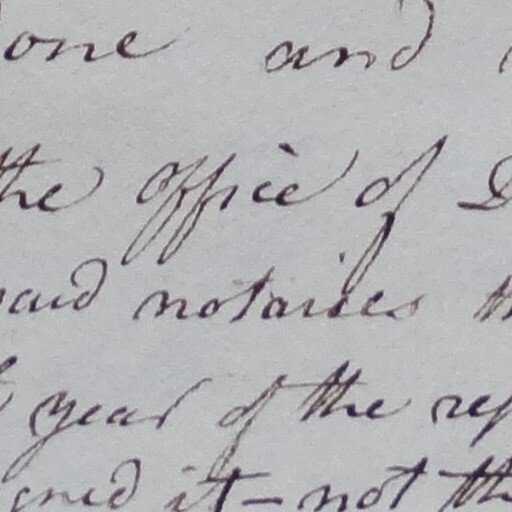 one and
the office of
said notaries
year of the
it - not